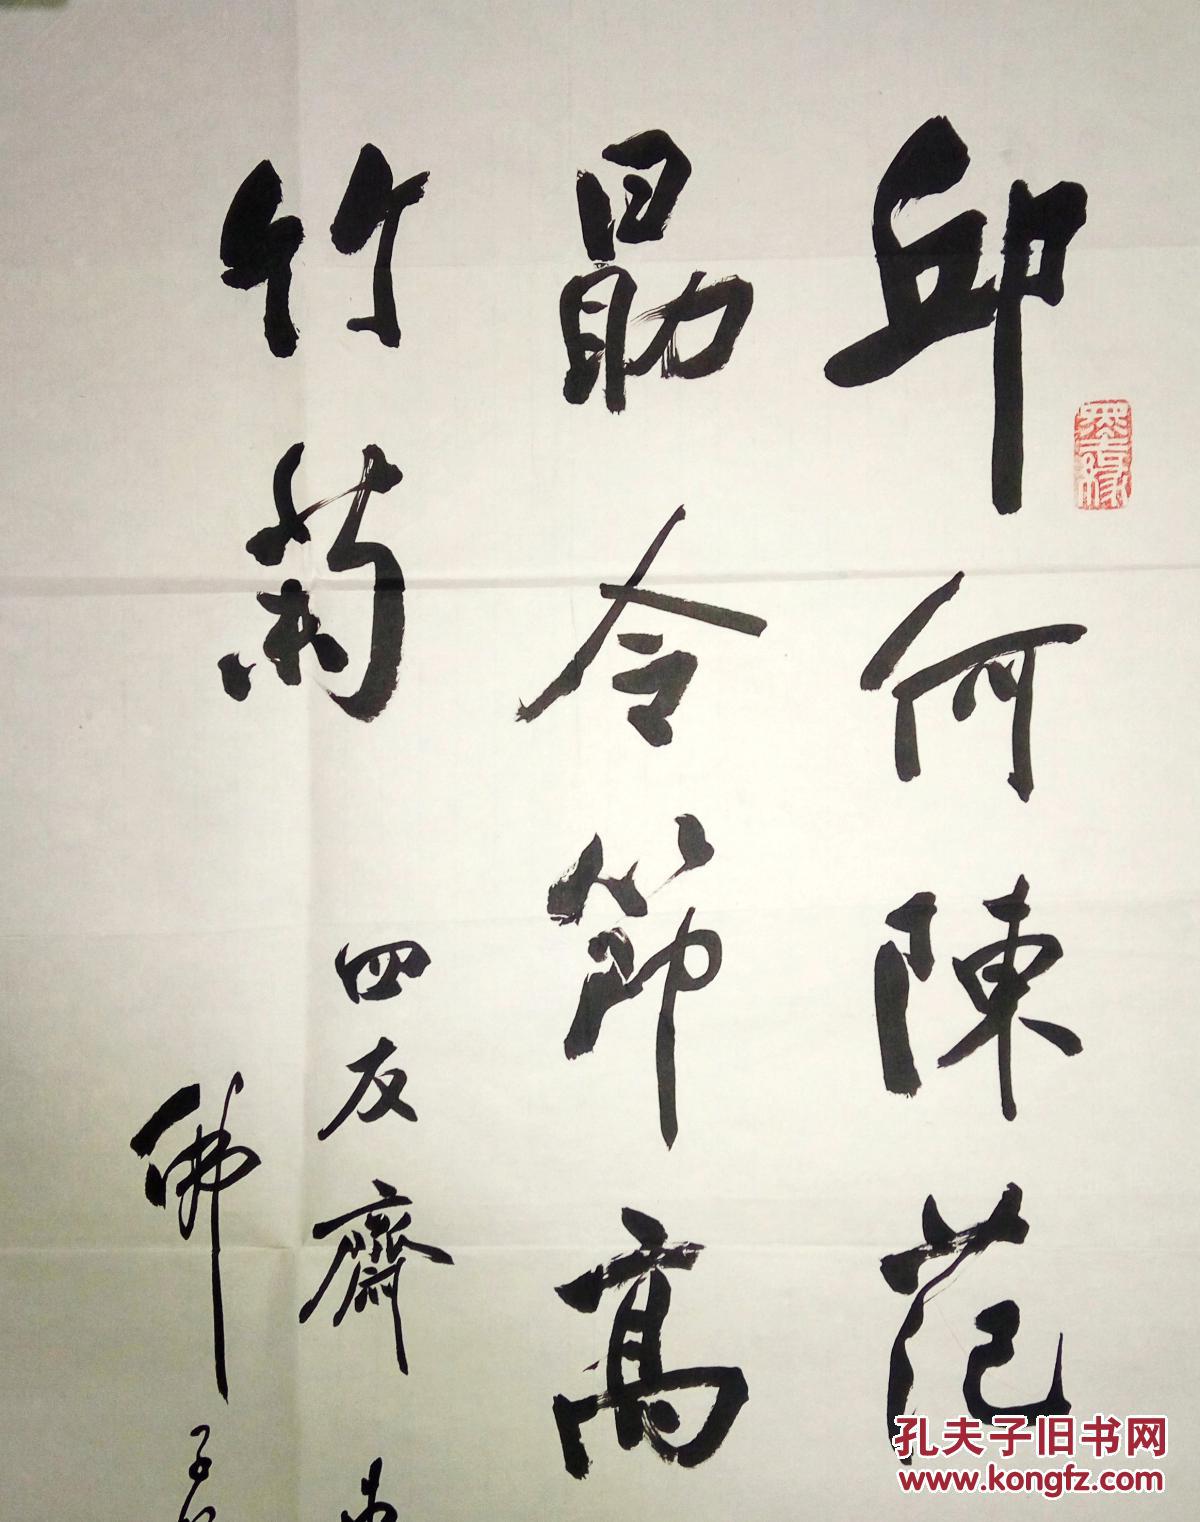 墨緣
邱何陳范
勗令節高
竹菊
四友齋
佛子
孔夫子旧书网
www.kongfz.com